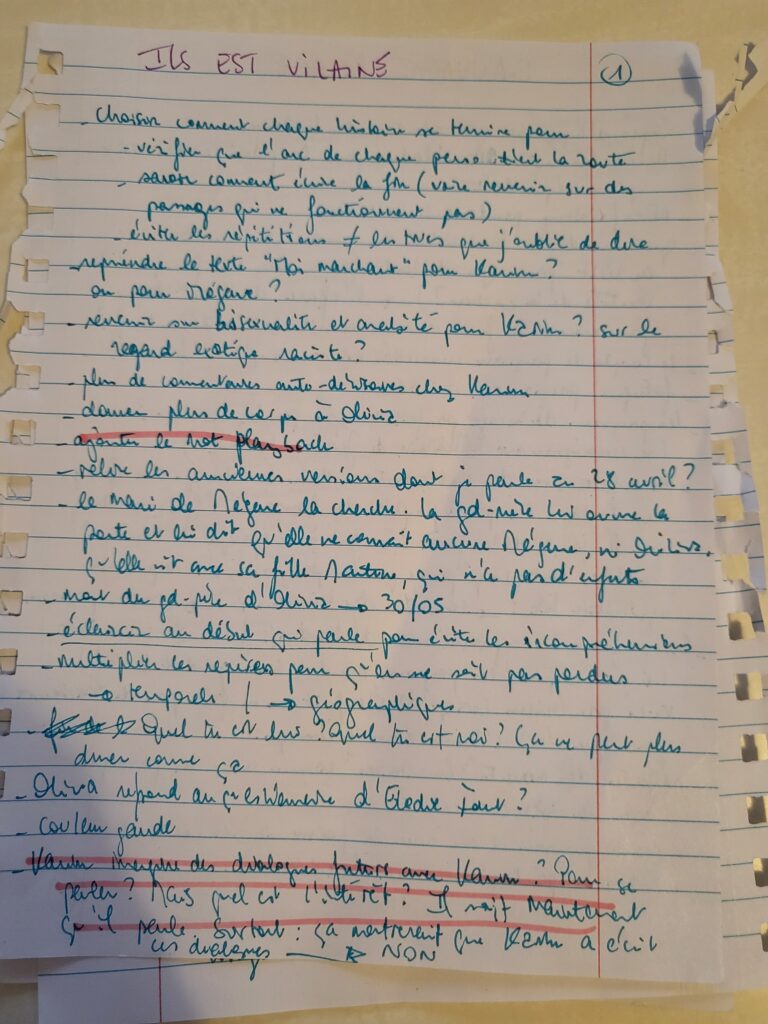 ILS EST VILAINE
1
- choisir comment chaque histoire se termine pour
- vérifier que l'arc de chaque perso tient la route
- savoir comment écrire la fin (voire revenir sur des
passages qui ne fonctionnent pas)
- éviter les répétitions ≠ les trucs que j'oublie de dire
- reprendre le texte "Moi marchant" pour Karim ?
ou pour Mégane ?
- revenir sur bisexualité et pour Karim ? sur le
regard exotique raciste ?
- plus de commentaires auto-dérisoires chez Karim
- donner plus de corps à Olivia
- ajouter le mot playback
- relire les anciennes versions dont je parle au 28 avril ?
- le mari de Mégane la cherche. La gd-mère lui ouvre la
porte et lui dit qu'elle ne connaît aucune Mégane, ni Olivia,
qu'elle vit avec sa fille, qui n'a pas d'enfants
- mort du gd-père d'Olivia → 30/05
- éclaircir au début qui parle pour éviter les incompréhensions
- multiplier les repères pour qu'on ne soit pas perdus
→ temporels / → géographiques
- Quel tu est lui ? Quel tu est moi ? Ça ne peut plus
durer comme ça
- Olivia répond au questionnaire d'Élodie Font ?
- couleur gaude
- Karim imagine des dialogues futurs avec Karim ? Pour se
parler ? Mais quel est l'intérêt ? Il sait maintenant
qu'il parle surtout : ça montrerait que Karim a écrit
ces dialogues → NON